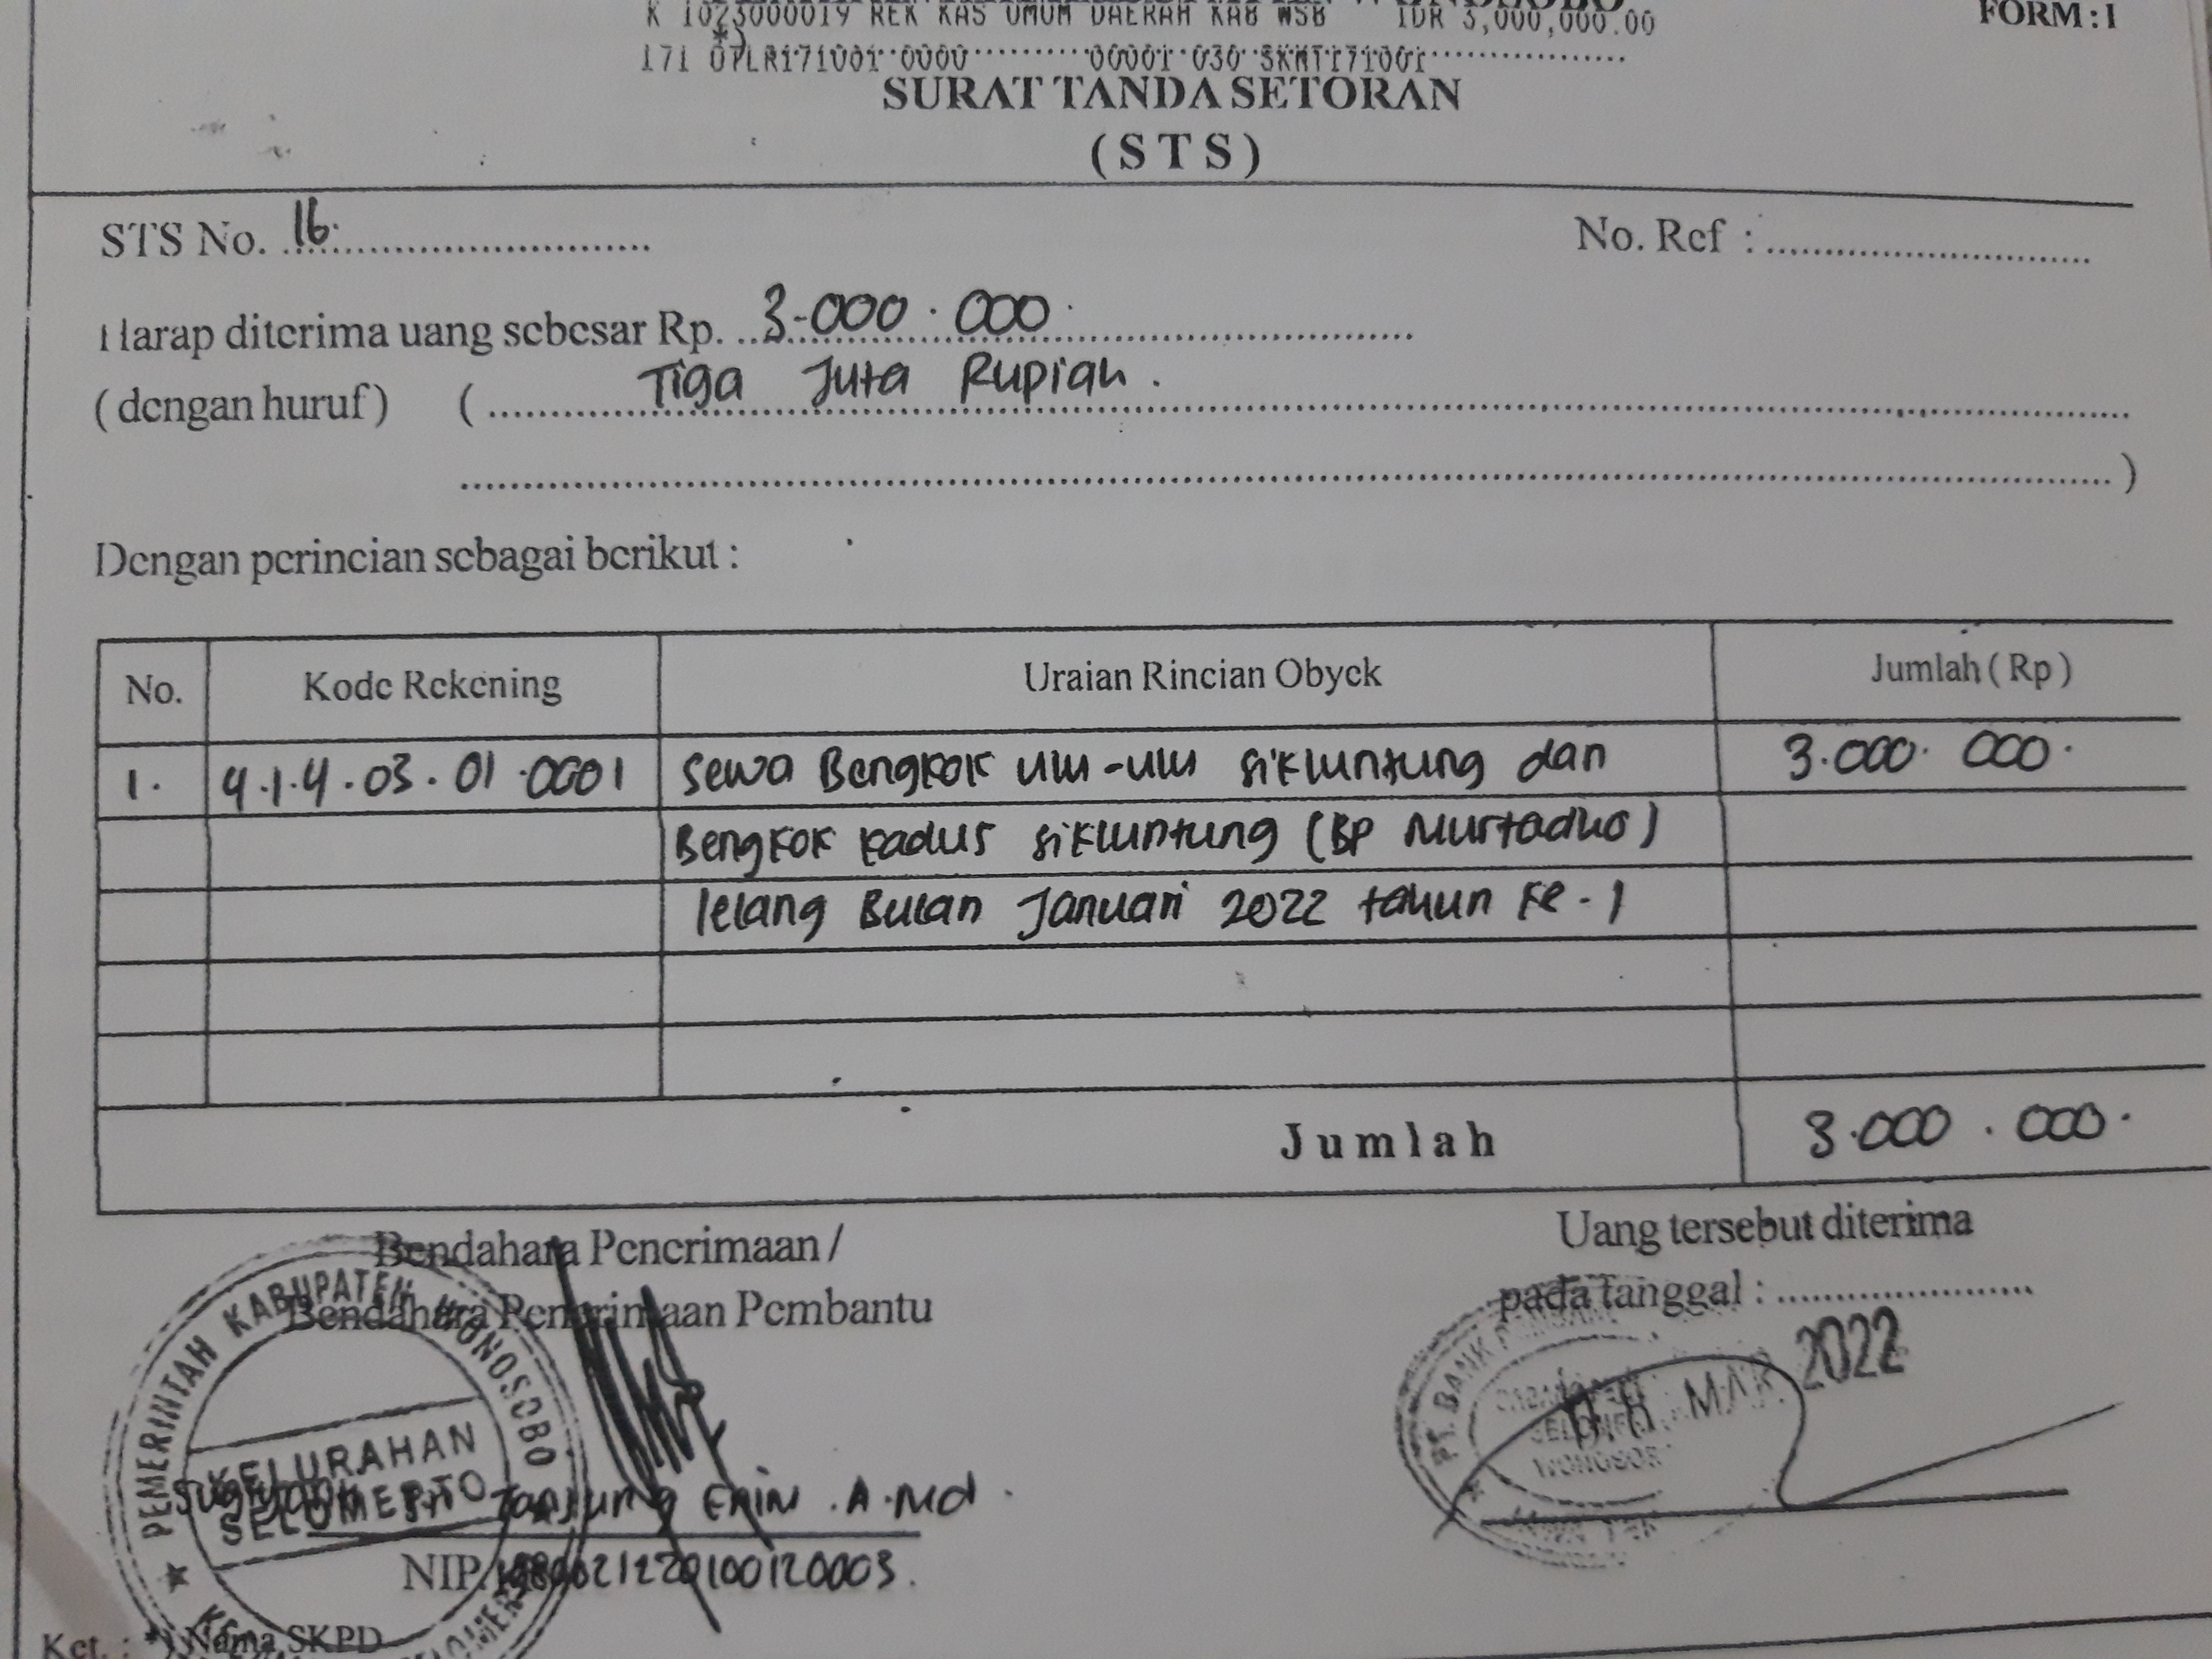 K 1023000019 REK KAS UMUM DAERAH KAB WSB IDR 3,000,000.00
FORM : 1
SURAT TANDA SETORAN
( S T S )
STS No. 16.
No. Ref :
Harap diterima uang sebesar Rp. 3.000.000.
( dengan huruf ) ( Tiga Juta Rupiah.
)
Dengan perincian sebagai berikut :
No. Kode Rekening Uraian Rincian Obyek Jumlah ( Rp )
1. 4.1.4.03.01.0001 Sewa Bengkok ulu-ulu sikluntung dan 3.000.000.
Bengkok Kadus sikluntung (BP Murtadho)
lelang Bulan Januari 2022 tahun ke-1
Jumlah 3.000.000.
Bendahara Penerimaan /
Bendahara Penerimaan Pembantu
Uang tersebut diterima
pada tanggal :
MAR 2022
PEMERINTAH KABUPATEN WONOSOBO
KELURAHAN
SELOMERTO
PT. BANK
Tanjung A.Md.
NIP.
Ket. : *) Nama SKPD